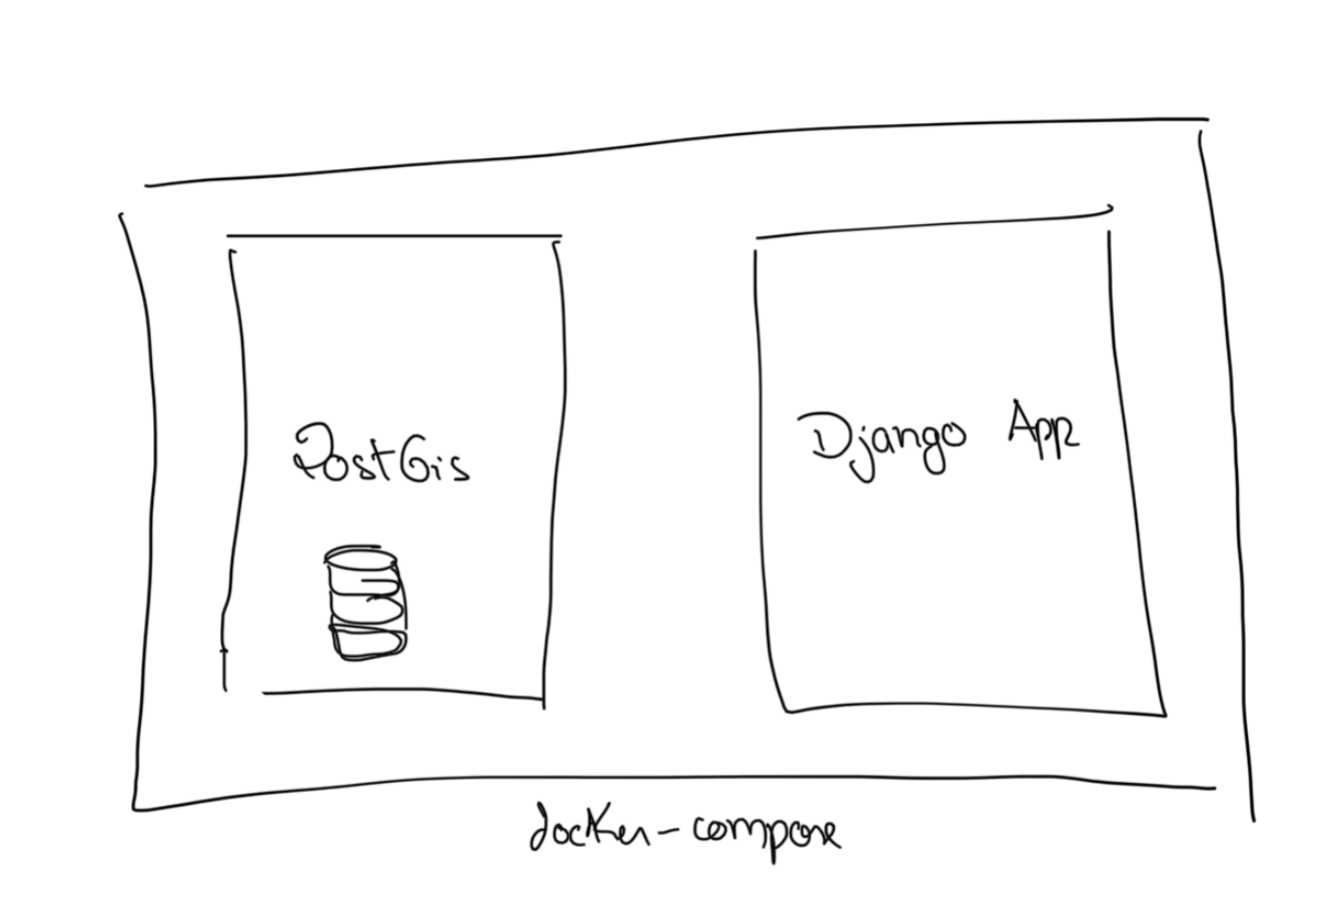 PostGis
Django App
docker-compose